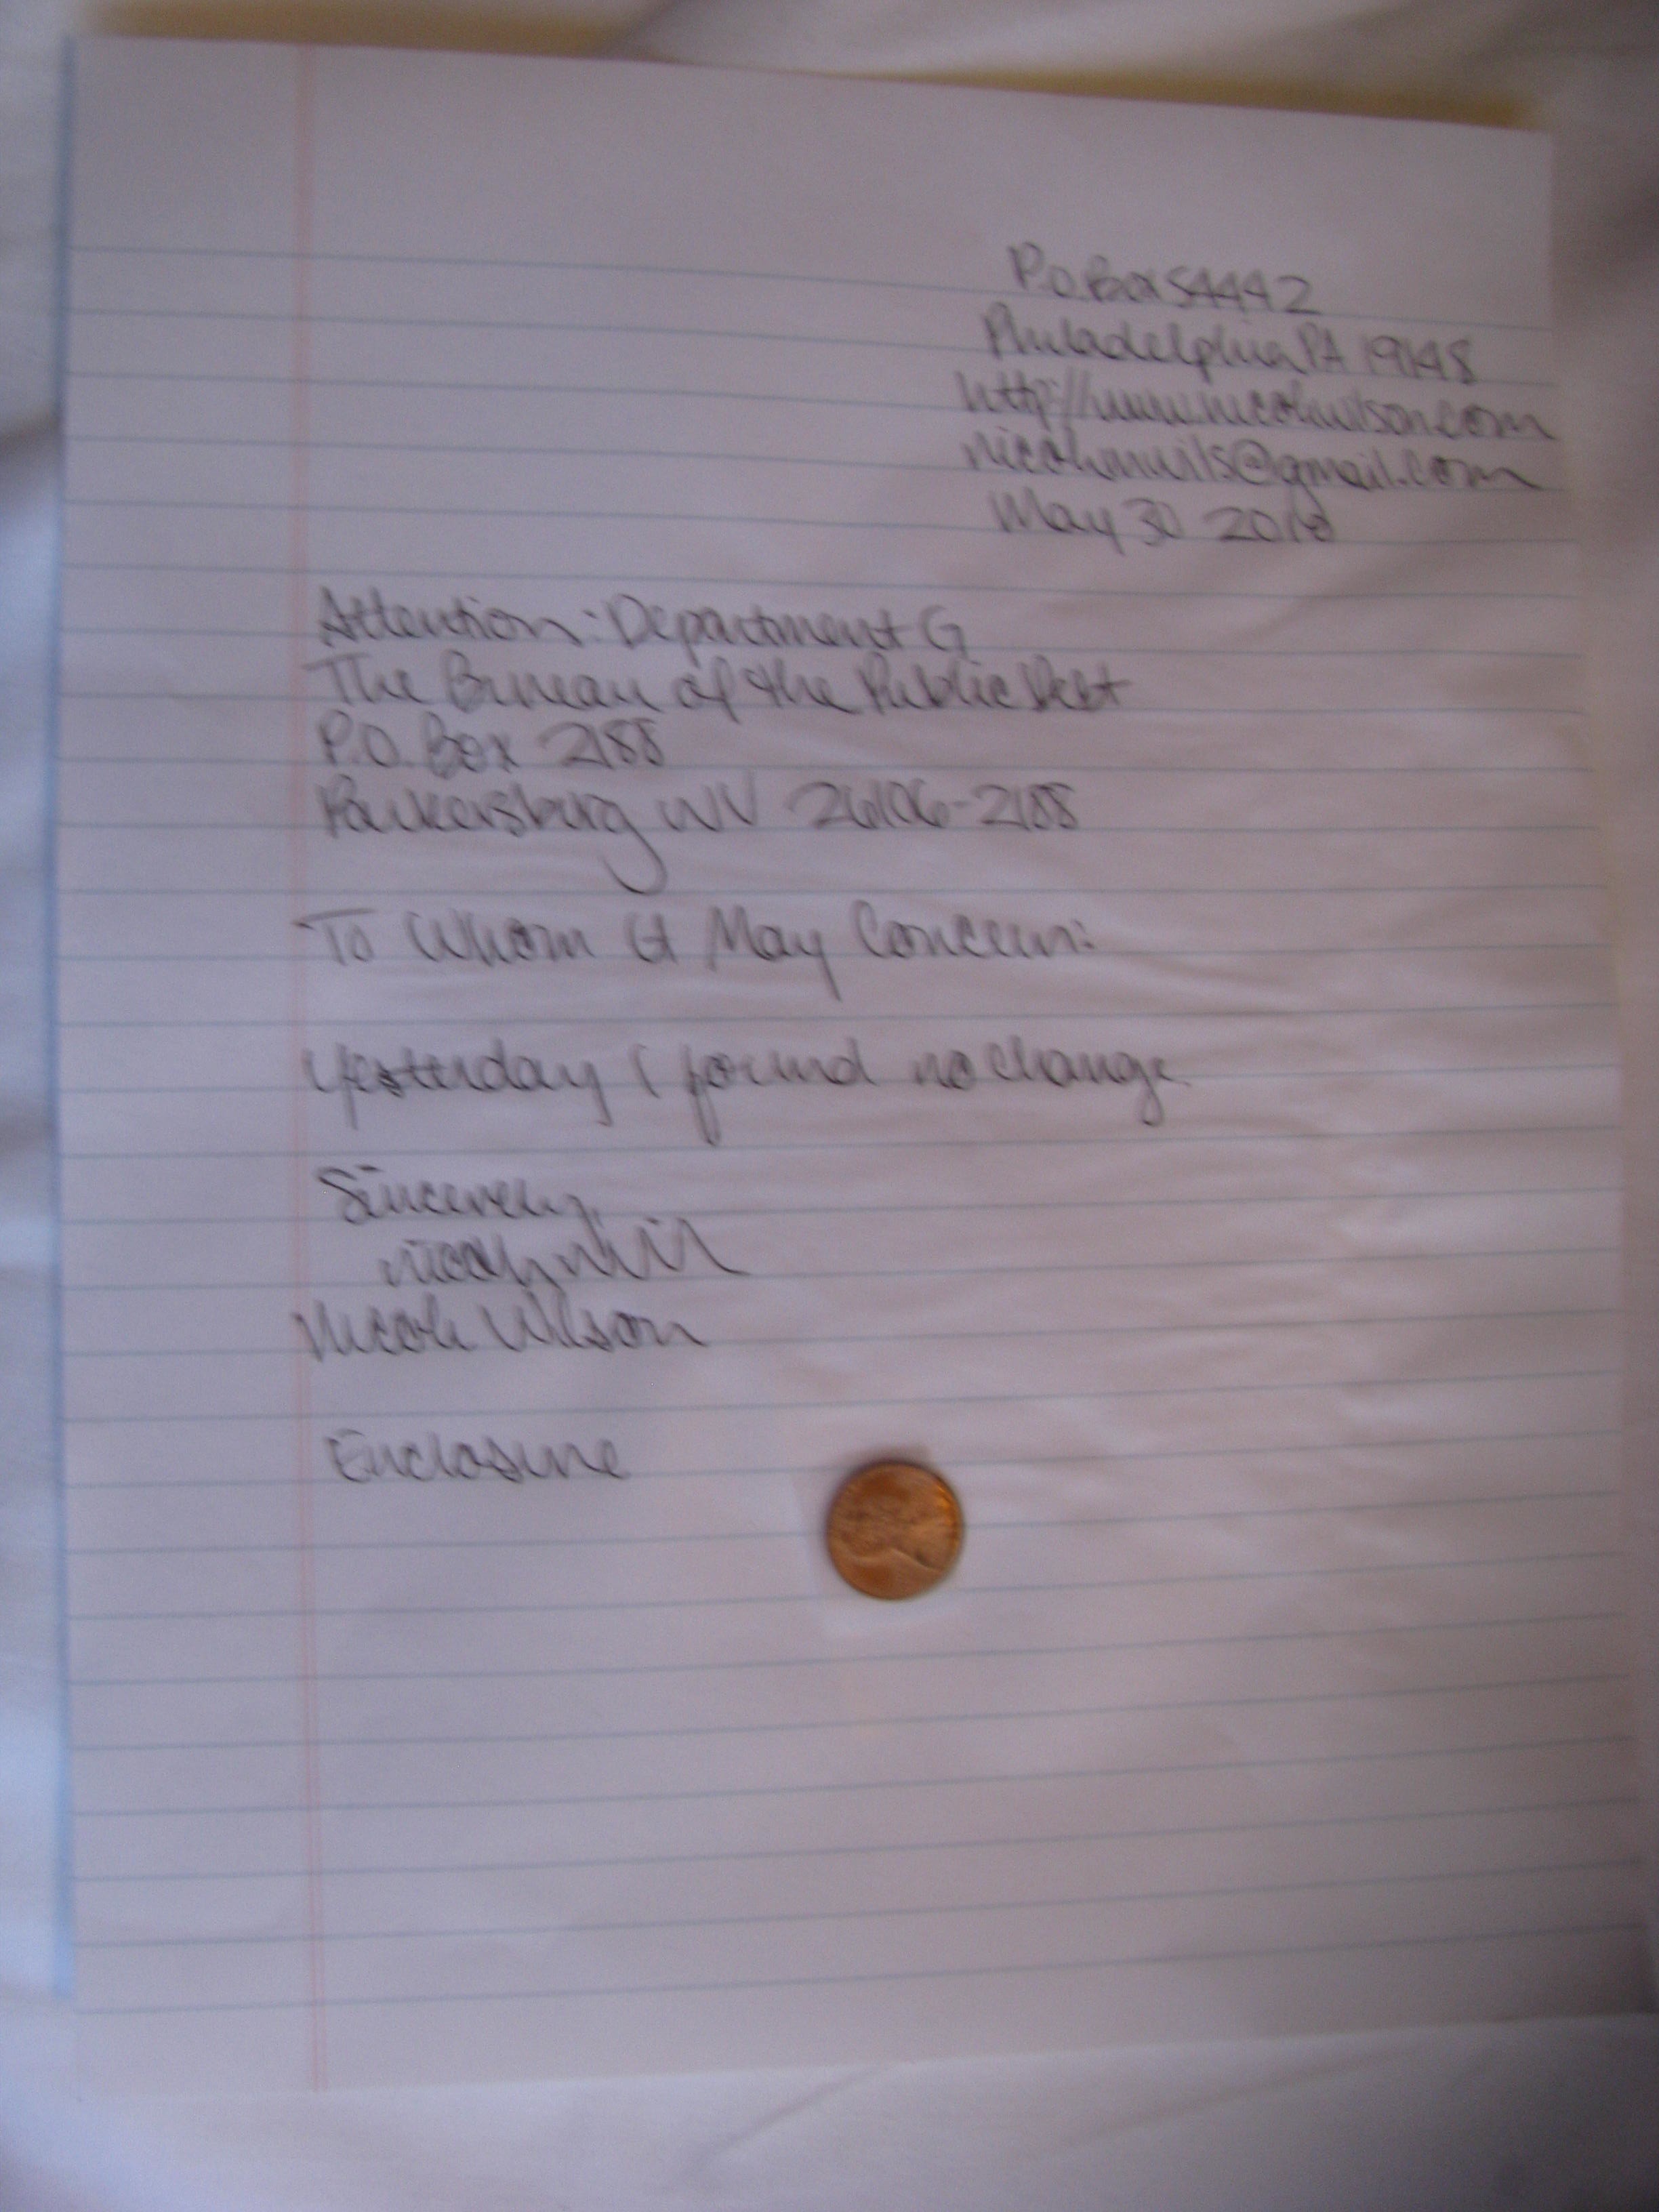 P.O. Box 54442
Philadelphia PA 19148
http://www.nicolewilson.com
May 30 2010
Attention: Department G
The Bureau of the Public Debt
P.O. Box 2188
Parkersburg WV 26106-2188
To Whom It May Concern:
Yesterday I found no change.
Sincerely,
Nicole Wilson
Enclosure